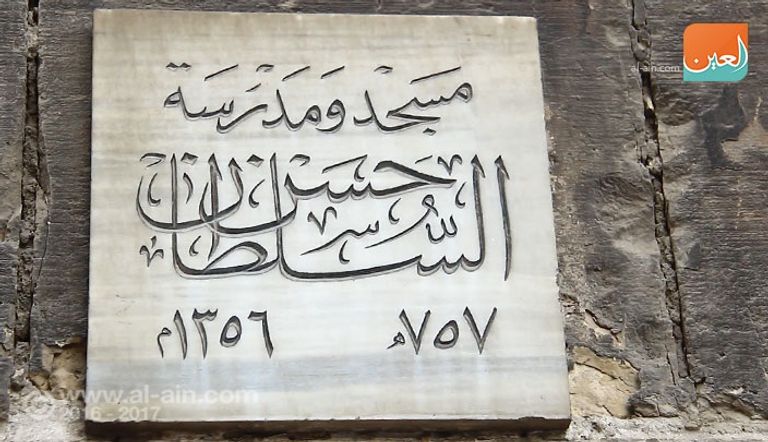 العين
al-ain.com
مسجد ومدرسة
السلطان حسن
٧٥٧هـ ١٣٥٦م
www.al-ain.com
2016 - 2017